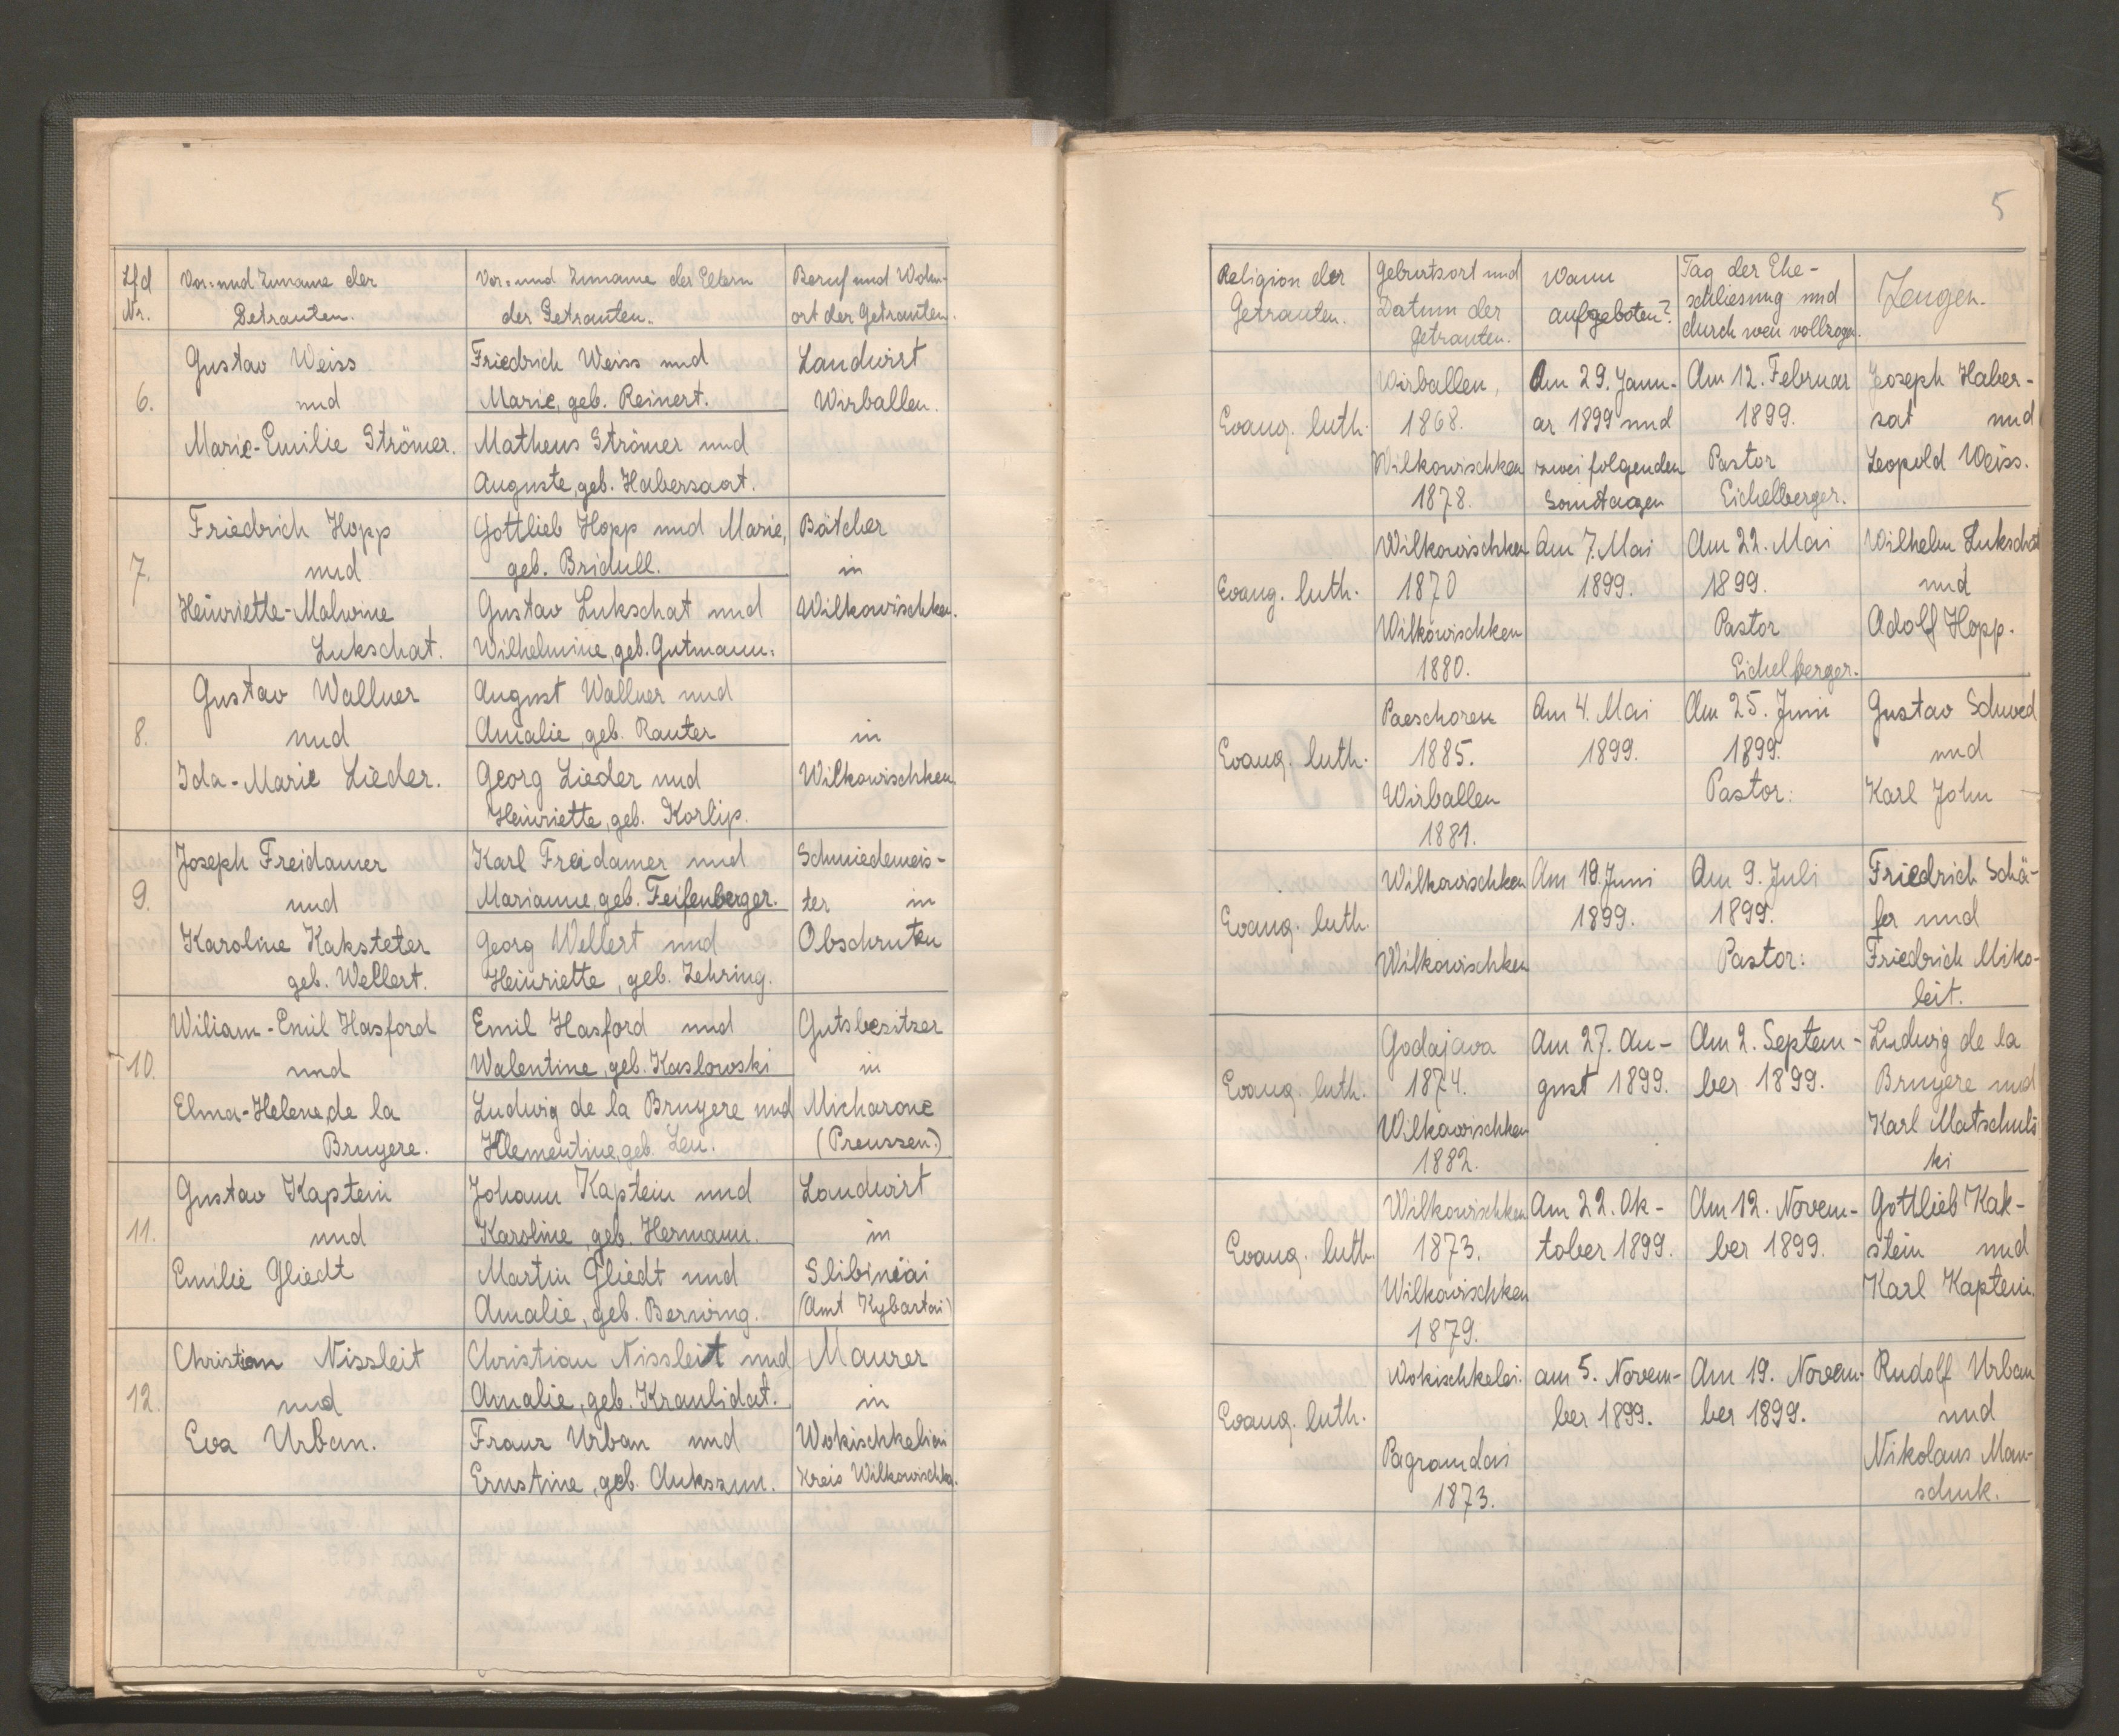 5
Lfd Nr.
Vor- und Zuname der
Getrauten.
Vor- und Zuname der Eltern
der Getrauten.
Beruf und Wohn-
ort der Getrauten.
Religion der
Getrauten.
Geburtsort und
Datum der
Getrauten.
Wann
aufgeboten?
Tag der Ehe-
schliesung und
durch wen vollzogen.
Zeugen.
6.
Gustav Weiss
und
Marie-Emilie Strömer.
Friedrich Weiss und
Marie, geb. Reinert.
Matheus Strömer und
Auguste, geb. Habersaat.
Landwirt
Wirballen.
Evang. luth.
Wirballen,
1868.
Wilkowischken
1878.
Am 29. Janu-
ar 1899 und
zwei folgenden
Sonntagen
Am 12. Februar
1899.
Pastor
Eichelberger.
Joseph Haber-
sat und
Leopold Weiss.
7.
Friedrich Hopp
und
Heinriette-Malwine
Lukschat.
Gottlieb Hopp und Marie,
geb. Bridull.
Gustav Lukschat und
Wilhelmine, geb. Gutmann.
Bätcher
in
Wilkowischken.
Evang. luth.
Wilkowischken
1870
Wilkowischken
1880.
Am 7. Mai
1899.
Am 22. Mai
1899.
Pastor
Eichelberger.
Wilhelm Lukschat
und
Adolf Hopp.
8.
Gustav Wallner
und
Ida-Marie Lieder.
August Wallner und
Amalie, geb. Rauter
Georg Lieder und
Heinriette, geb. Korlip.
in
Wilkowischken
Evang. luth.
Paeschoren
1885.
Wirballen
1881.
Am 4. Mai
1899.
Am 25. Juni
1899.
Pastor:
Gustav Schwed
und
Karl John
9.
Joseph Freidamer
und
Karoline Kaksteter
geb. Wellert.
Karl Freidamer und
Marianne, geb. Feifenberger.
Georg Wellert und
Heinriette, geb. Zehring.
Schmiedemeis-
ter in
Obschruten
Evang. luth.
Wilkowischken
Wilkowischken
Am 19. Juni
1899.
Am 9. Juli
1899.
Pastor:
Friedrich Schä-
fer und
Friedrich Miko-
leit.
10.
Wiliam-Emil Hasford
und
Elma-Helene, de la
Bruyere.
Emil Hasford und
Walentine, geb. Kaslowski
Ludwig de la Bruyere und
Klementine, geb. Leu.
Gutsbesitzer
in
Micharone
(Preussen.)
Evang. luth.
Godajawa
1874.
Wilkowischken
1882.
Am 27. Au-
gust 1899.
Am 2. Septem-
ber 1899.
Ludwig de la
Bruyere und
Karl Matschuls
ki
11.
Gustav Kaptein
und
Emilie Gliedt
Johann Kaptein und
Karoline, geb. Hermann.
Martin Gliedt und
Amalie, geb. Berwing.
Landwirt
in
Slibinčiai
(Amt Kybartai)
Evang. luth.
Wilkowischken
1873.
Wilkowischken
1879.
Am 22. Ok-
tober 1899.
Am 12. Novem-
ber 1899.
Gottlieb Kak-
stein und
Karl Kaptein.
12.
Christian Nissleit
und
Eva Urban.
Christian Nissleit und
Amalie, geb. Kraulidat.
Franz Urban und
Ernstine, geb. Aukszun.
Maurer
in
Wokischkeliai
Kreis Wilkowischken.
Evang. luth.
Wokischkelei.
Pagramdai
1873.
am 5. Novem-
ber 1899.
Am 19. Novem-
ber 1899.
Rudolf Urban
und
Nikolaus Man-
schuk.